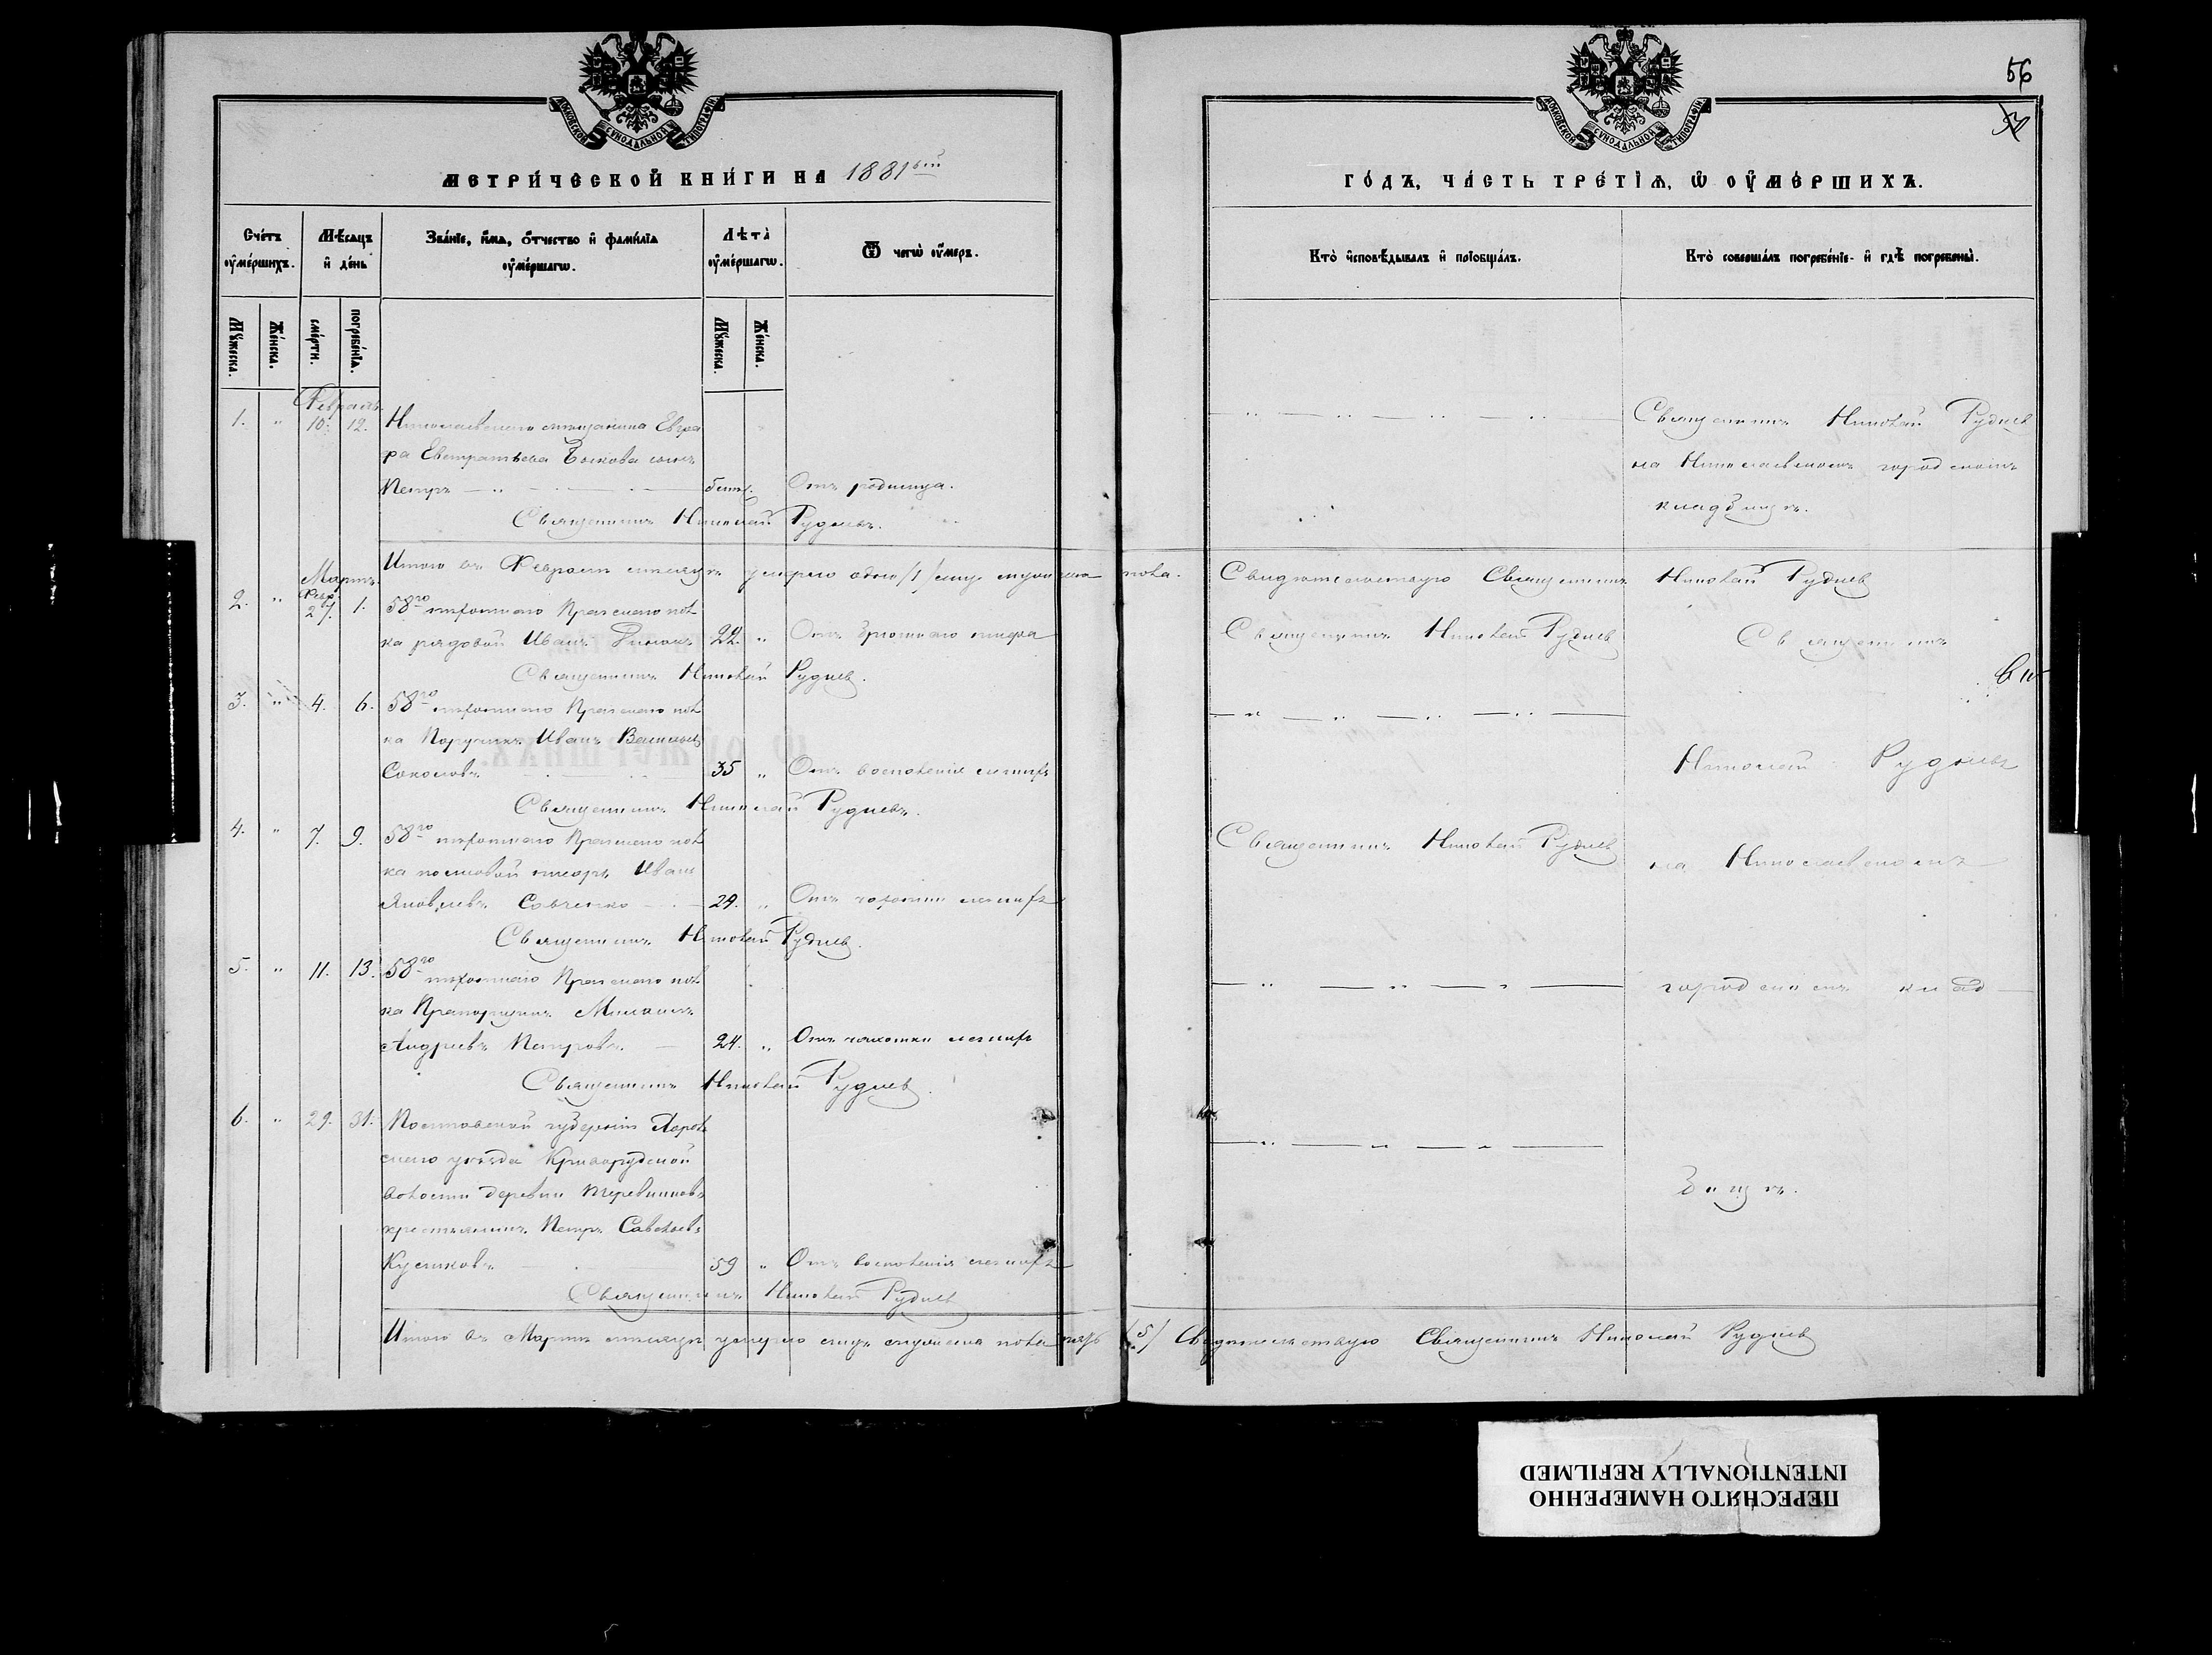 МОСКОВСКОЙ СѴНОДАЛЬНОЙ ТИПОГРАФІИ
МЕТРИ́ЧЕСКОЙ КНИ́ГИ НА 1881ый
Сче́тъ оу҆ме́ршихъ.
Мѣ́сяцъ и҆ де́нь
Зва́нїе, и҆́мѧ, о҆́тчество и҆ фами́лїа оу҆ме́ршагѡ.
Лѣта̀ оу҆ме́ршагѡ.
Ѿ чегѡ̀ оу҆́меръ.
Мꙋ́жеска.
Же́нска.
сме́рти.
погребе́нїѧ.
Мꙋ́жеска.
Же́нска.
Февраль.
1. " 10. 12. Николаевскаго мѣщанина
Быкова сынъ
Петръ Отъ родимца.
Священникъ Николай Рудневъ.
Итого въ Февралѣ мѣсяцѣ умерло одно /1/ муж. мужеска пола.
Мартъ.
Февр.
2. " 27. 1. 58го пѣхотнаго Прагскаго пол
ка рядовой Иванъ 22. " Отъ брюшнаго тифа
Священникъ Николай Руднев.
3. " 4. 6. 58го пѣхотнаго Прагскаго пол
ка Поручикъ Иванъ Васильевъ
Соколовъ 35 " Отъ воспаленія легкихъ
Священникъ Николай Рудневъ.
4. " 7. 9. 58го пѣхотнаго Прагскаго пол
ка полковой писарь Иванъ
Яковлевъ Савченко 29. " Отъ чахотки легкихъ
Священникъ Николай Руднев.
5. " 11. 13. 58го пѣхотнаго Прагскаго пол
ка Прапорщикъ Михаилъ
Андреевъ Петровъ. 24. " Отъ чахотки легкихъ
Священникъ Николай Руднев.
6. " 29. 31. Полтавской губерніи Хороль
скаго уѣзда Криворудской
волости деревни
крестьянинъ Петръ Савельевъ
59 " Отъ воспаленія легкихъ
Священникъ Николай Руднев
Итого въ Мартѣ мѣсяцѣ умерло мужеска пола пять (5)
56
МОСКОВСКОЙ СѴНОДАЛЬНОЙ ТИПОГРАФІИ
ГО́ДЪ, ЧА́СТЬ ТРЕ́ТЇѦ, Ѡ҆ ОУ҆МЕ́РШИХЪ.
Кто̀ и҆сповѣ́дывалъ и҆ прїобща́лъ.
Кто̀ соверша́лъ погребе́нїе и҆ гдѣ̀ погребены̀.
Священникъ Николай Руднев
на Николаевскомъ городскомъ
кладбищѣ.
Свидѣтельствую Священникъ Николай Руднев
Священникъ Николай Руднев
Священникъ
Николай Рудневъ
Священникъ Николай Руднев
на Николаевскомъ
городскомъ клад
бищѣ.
Свидѣтельствую Священникъ Николай Руднев
ПЕРЕСНЯТО НАМЕРЕННО
INTENTIONALLY REFILMED